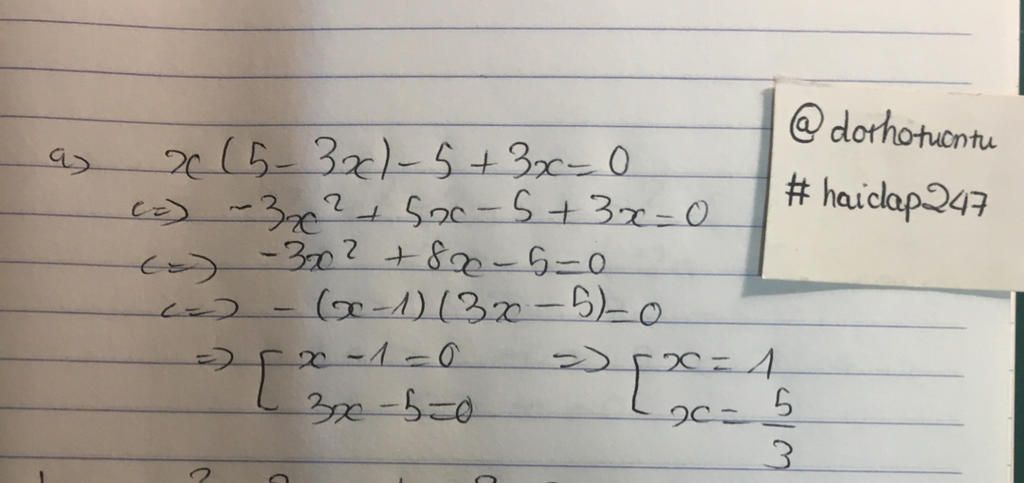 a) x(5 - 3x) - 5 + 3x = 0
<=> -3x² + 5x - 5 + 3x = 0
<=> -3x² + 8x - 5 = 0
<=> - (x - 1)(3x - 5) = 0
=> [ x - 1 = 0 => [ x = 1
3x - 5 = 0 x = 5/3
@dorhotuontu
# haidap247